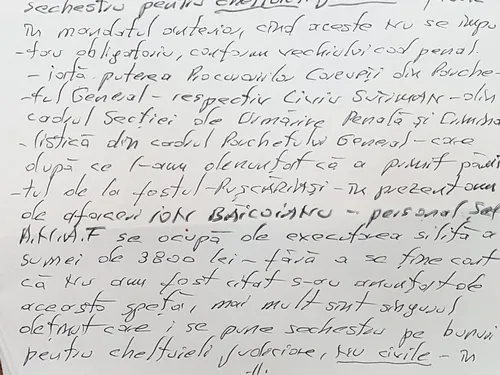 sechestru pentru cheltuieli
în mandatul anterior, cînd aceste nu se impu
-tau obligatoriu, conform vechiului cod penal.
- iată puterea Procurorilor Corupți din Parche-
-tul General - respectiv Liviu - din
cadrul Secției de Urmărire Penală și Crimina
-listică din cadrul Parchetului General - care
după ce l-am denunțat că a primit pămîn
-tul de la fostul - Pușcăriași - în prezent om
de afaceri - personal, Șef
A.N.A.F se ocupă de executarea silită a
sumei de 3800 lei - fără a se ține cont
că nu am fost citat s-au anunțat de
această speță, mai mult sînt singurul
deținut care i se pune sechestru pe bunuri
pentru cheltuieli judiciare, nu civile - în